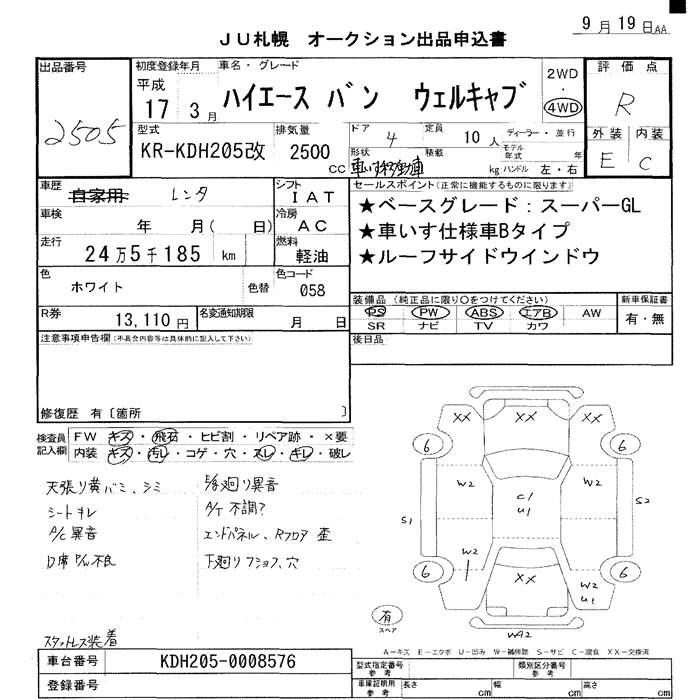 9月19日AA
JU札幌 オークション出品申込書
出品番号
2505
初度登録年月
平成
17 3月
車名・グレード
ハイエース バン ウェルキャブ
2WD
・
4WD
評価点
R
外装 内装
E C
型式
KR-KDH205改
排気量
2500
CC
ドア 4
定員
10人
ディーラー・並行
モデル年式 年
形状
車いす移動車
積載
kg
ハンドル 左・右
車歴
自家用 レンタ
シフト
IAT
車検
年 月( 日)
冷房
AC
走行
24万5千185 km
燃料
軽油
色
ホワイト
色替
色コード
058
R券
13,110円
名変通知期限
月 日
セールスポイント(正常に機能するものに限ります)
★ベースグレード:スーパーGL
★車いす仕様車Bタイプ
★ルーフサイドウインドウ
装備品(純正品に限り○をつけてください)
PS PW ABS エアB AW
SR ナビ TV カワ
新車保証書
有・無
後日品
注意事項申告欄(不具合内容等は具体的に記入して下さい)
修復歴 有〔箇所 〕
検査員記入欄
FW キズ・飛石・ヒビ割・リペア跡・×要
内装 キズ・汚レ・コゲ・穴・スレ・キレ・破レ
天張り黄バミ、シミ
シートキレ
A/C異音
D席P/W不良
スタットレス装着
E/g廻り異音
A/T不調?
エンドパネル、Rフロア歪
下廻りフショフ、穴
XX XX XX
6 6
W2 W2
C1
U1
S1 S2
W2
W2
U1
XX
6 6
W42
有
スペア
A-キズ E-エクボ U-凹み W-補修跡 S-サビ C-腐食 XX-交換済
車台番号
KDH205-0008576
登録番号
型式指定番号
参考
類別区分番号
参考
車庫証明用
参考
長さ cm
幅 cm
高さ cm